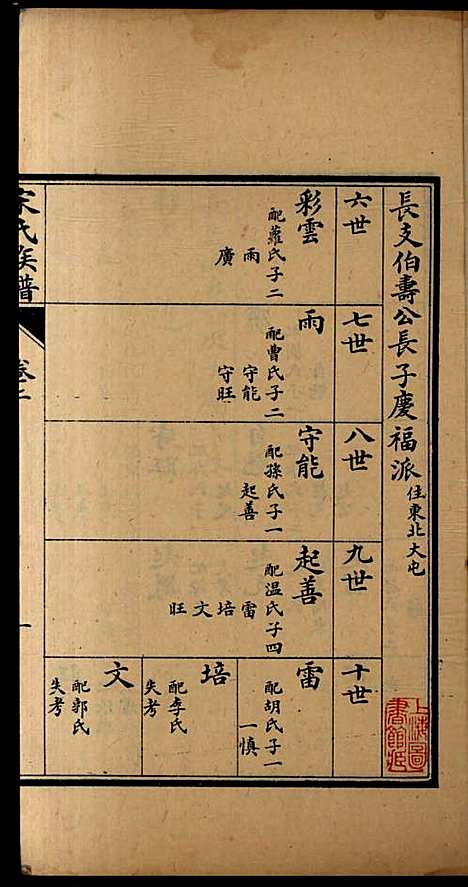 長支伯壽公長子慶福派住東北大屯
六世
彩雲
配蘿氏子二
雨
廣
七世
雨
配曹氏子二
守能
守旺
八世
守能
配孫氏子一
起善
九世
起善
配温氏子四
雷
培
文
旺
十世
雷
配胡氏子一
一慎
培
配李氏
失考
文
配郭氏
失考
氏族譜
卷
一
上海圖
書館